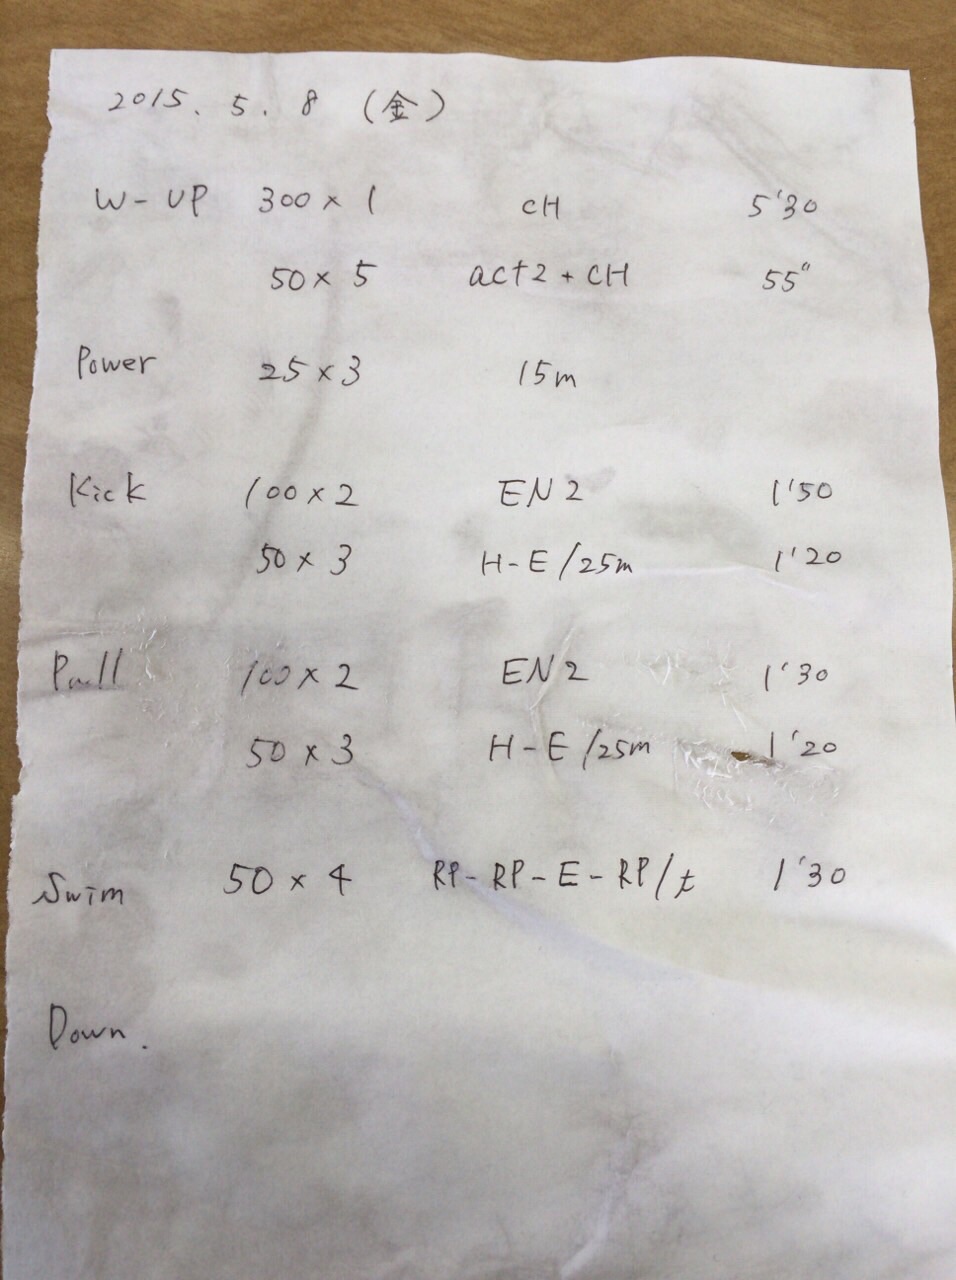 2015. 5. 8 (金)
W-UP 300×1 CH 5'30
50×5 act2+CH 55"
Power 25×3 15m
Kick 100×2 EN2 1'50
50×3 H-E/25m 1'20
Pull 100×2 EN2 1'30
50×3 H-E/25m 1'20
Swim 50×4 RP-RP-E-RP/t 1'30
Down.